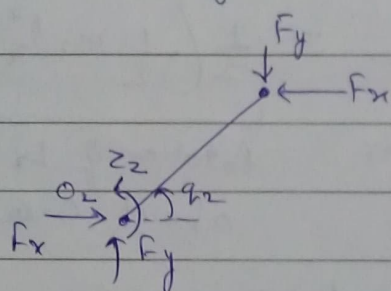 Fy
Fx
τ2
θ2 q2
Fx Fy